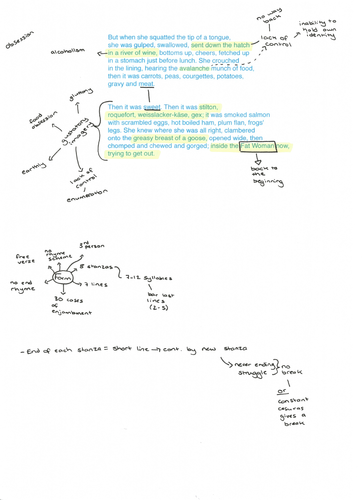 no way
back
inability
to hold own
identity
lack of
control
obsession
alcoholism
But when she squatted the tip of a tongue,
she was gulped, swallowed, sent down the hatch
in a river of wine, bottoms up, cheers, fetched up
in a stomach just before lunch. She crouched
in the lining, hearing the avalanche munch of food,
then it was carrots, peas, courgettes, potatoes,
gravy and meat.
Then it was sweet. Then it was stilton,
roquefort, weisslacker-käse, gex; it was smoked salmon
with scrambled eggs, hot boiled ham, plum flan, frogs'
legs. She knew where she was all right, clambered
onto the greasy breast of a goose, opened wide, then
chomped and chewed and gorged; inside the Fat Woman now,
trying to get out.
gluttony
food
obsession
gustatory
imagery
earthy
lack of
control
enumeration
back to
the
beginning
3rd
person
no
rhyme
scheme
free
verse
Form
8 stanzas
7 lines
7-12 syllables
bar last
lines
(2-5)
no end
rhyme
30 cases
of
enjambment
- End of each stanza = short line → cont. by new stanza
never ending
struggle
no
break
or
constant
cesuras
gives a
break